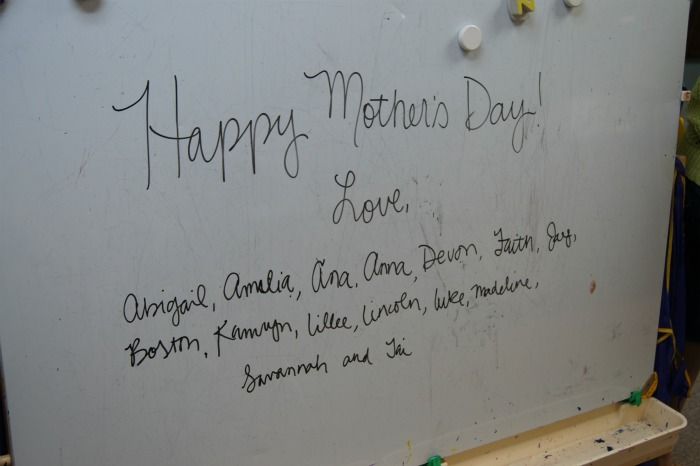 Happy Mother's Day!
Love,
Abigail, Amelia, Ana, Anna, Devon, Faith, Jay,
Boston, Kamryn, Lillee, Lincoln, Luke, Madeline,
Savannah and Tai